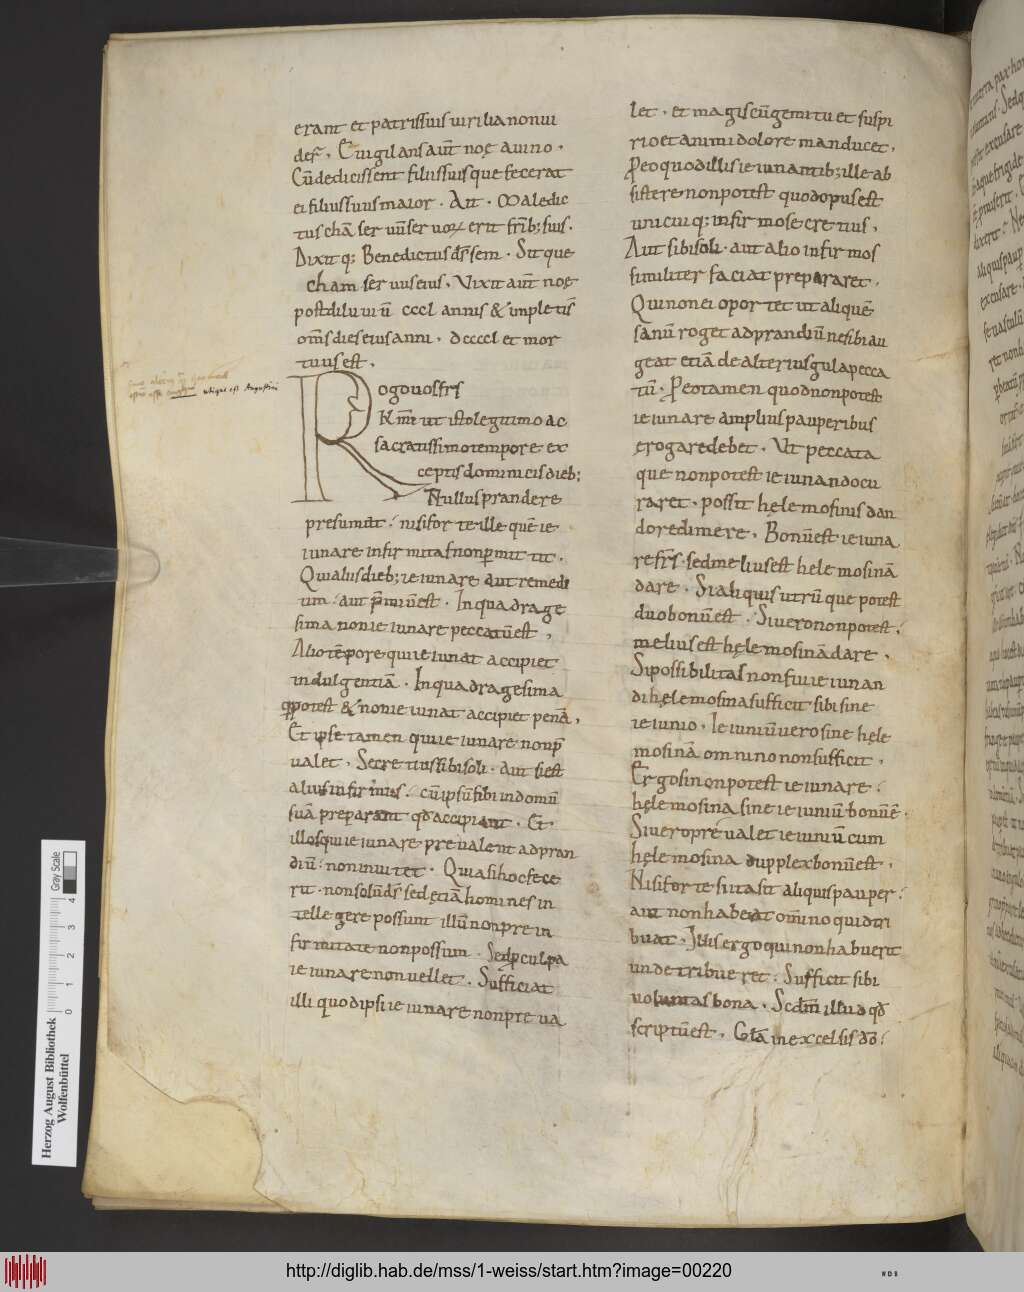 erant et patris sui uirilia non ui
der̄. Euigilans aut̄ noę a uino.
Cū dedicissent filius suus que fecerat
ei filius suus maior. Ait. Maledic
tus cham̄ ser uūs
erit fr̄ib; suis.
Dixit q; Benedictus dn̄s sem. Sitque
cham seruus eius. Vixit aut̄ noę
post diluuiū cccl annis & impleti s̄
om̄s dies eius anni. dccccl et mor
tuus est.
utique est Augustini
Rogo uos fr̄s
Km̄i ut isto legitimo ac
sacratissimo tempore ex
ceptis dominicis dieb;
Nullus prandere
presumat. nisi forte ille quē ie
iunare infirmitas non p̄mittit.
Quia aliis dieb; ieiunare aut remedi
um. aut p̄miū est. In quadrage
sima non ieiunare peccatū est.
Alio tēpore qui ieiunat accipiet
indulgentiā. In quadragesima
qui potest & non ieiunat accipiet penā.
Et ipse tamen qui ieiunare non p̄
ualet. Secretius sibi soli. Aut si est
alius infirmus. cū ipsū sibi in domū
suā preparant qd̄ accipiant. Et
illos qui ieiunare preualent ad pran
diū. non inuitet. Quia si hoc fece
rit. non solū ds̄ sed etiā homines in
tellegere possunt illū non pre in
firmitate non possum. Sed p culpa
ieiunare non uellet. Sufficiat
illi quod ipsi ieiunare non pre ua
let. et magis cū gemitu et suspi
rio et animi dolore manducet.
Peo quod illis ieiunantib; ille ab
sistere non potest quod opus est
unicuiq; infirmo secretius.
Aut sibi soli. aut alio infirmos
similiter faciat preparare.
Qui non ei oportet ut aliquē
sanū roget ad prandiū ne sibi au
geat etiā de alterius gula pecca
tū. Peo tamen quod non potest
ieiunare amplius pauperibus
erogare debet. Vt peccata
que non potest ieiunando cu
raret. possit hęlemosinis dan
do redimere. Bonū est ieiuna
re fr̄s. sed melius est helemosinā
dare. Si aliquis utrū que potest
duo bonū est. Si uero non potest.
melius est hęlemosinā dare.
Si possibilitas non fuit ieiunan
di hęlemosina sufficit sibi sine
ieiunio. Ieiuniū uero sine hęle
mosinā omnino non sufficit.
Ergo si non potest ieiunare.
hęlemosina sine ieiuniū bonū ē.
Si uero preualet ieiuniū cum
hęlemosina dupplex bonū est.
Nisi forte si ita sit aliquis pauper.
aut non habeat om̄ino quid tri
buat. Illis ergo qui non habuerit
unde tribueret. Sufficit sibi
uoluntas bona. Scd̄m illud qd̄
scriptū est. Gl̄a in excelsis dō.
Herzog August Bibliothek
Wolfenbüttel
Gray Scale
0 1 2 3 4
http://diglib.hab.de/mss/1-weiss/start.htm?image=00220